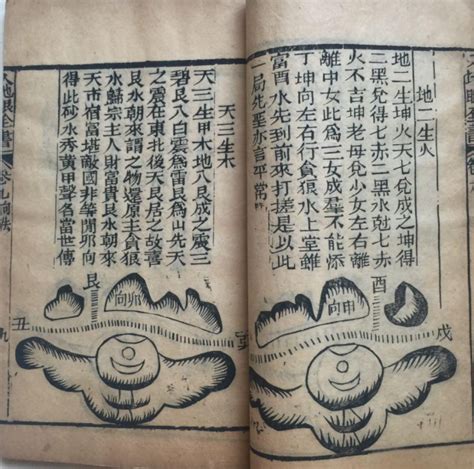 地二生火
地二生坤火天七兌成之坤得
二黑兌得七赤二黑水尅七赤
不吉坤老母兌少女左右離
離中女此為三女成羣不能添
丁坤向左右行貪狼水上堂雖
富酉水先到前來打搓是以此
局先聖亦言平常
酉
申向
戌
天三生木
天三生甲木地八艮成之震三
碧艮八白震為雷艮為山先天
之震在東北後天艮居之故喜
艮水朝來謂之物還原主貪狼
水歸宗主人財富貴艮水朝來
天市宿富堪敵國非等閒卯向
得此砂水秀黃甲聲名當世傳
艮
卯向
丑
地眼全書
九